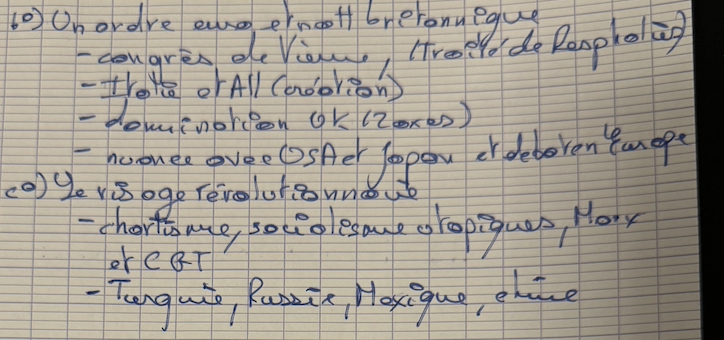 b°) Un ordre euro et non britannique
- congrès de Vienne, (traité de
- Italie et All (création)
- domination UK (2 axes)
- nuancée avec USA et Japon et début en Europe
c°) Le visage révolutionnaire
- chartisme, socialisme utopiques, Marx
et CGT
- Turquie, Russie, Mexique, chine